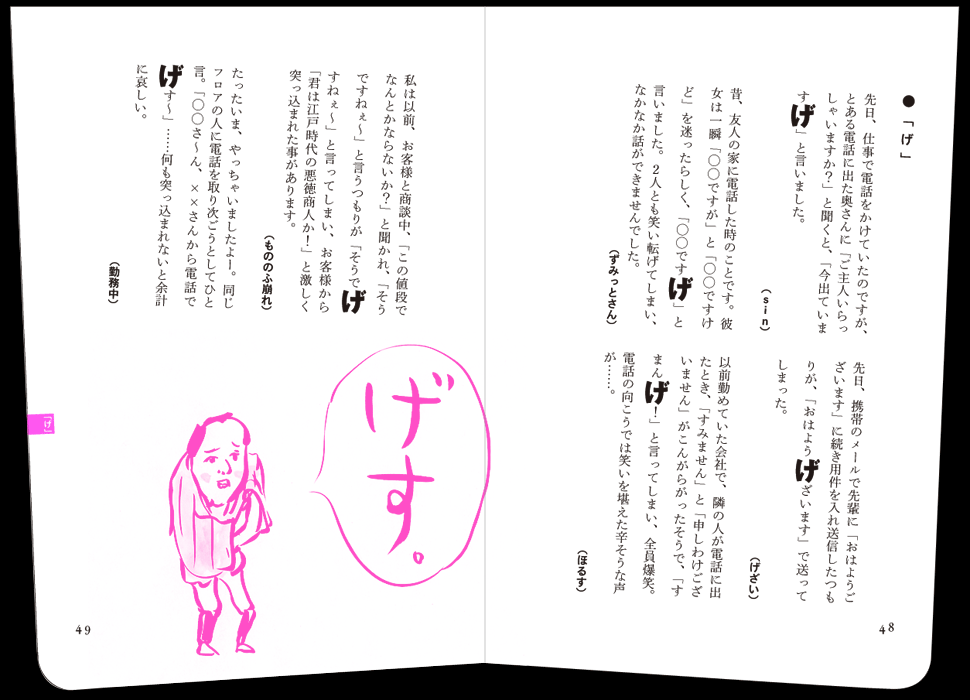 ●「げ」
先日、仕事で電話をかけていたのですが、
とある電話に出た奥さんに『ご主人いらっ
しゃいますか？」と聞くと、「今出ていま
すげ」と言いました。
（ｓｉｎ）
昔、友人の家に電話した時のことです。彼
女は一瞬「〇〇ですが」と「〇〇ですけ
ど」を迷ったらしく、「〇〇ですげ」と
言いました。２人とも笑い転げてしまい、
なかなか話ができませんでした。
（すみっとさん）
先日、携帯のメールで先輩に「おはようご
ざいます」に続き用件を入れ送信したつも
りが、「おはようげざいます」で送って
しまった。
（げざい）
以前勤めていた会社で、隣の人が電話に出
たとき、「すみません」と「申しわけござ
いません」がこんがらがったそうで、「す
まんげ！」と言ってしまい、全員爆笑。
電話の向こうでは笑いを堪えた辛そうな声
が……。
（ほるす）
48
私は以前、お客様と商談中、「この値段で
なんとかならないか？」と聞かれ、「そう
ですねぇ〜」と言うつもりが「そうでげ
すねぇ〜」と言ってしまい、お客様から
「君は江戸時代の悪徳商人か！」と激しく
突っ込まれた事があります。
（もののふ崩れ）
たったいま、やっちゃいましたよー。同じ
フロアの人に電話を取り次ごうとしてひと
言。「〇〇さ〜ん、××さんから電話で
げす〜」……何も突っ込まれないと余計
に哀しい。
（勤務中）
げす。
「げ」
49